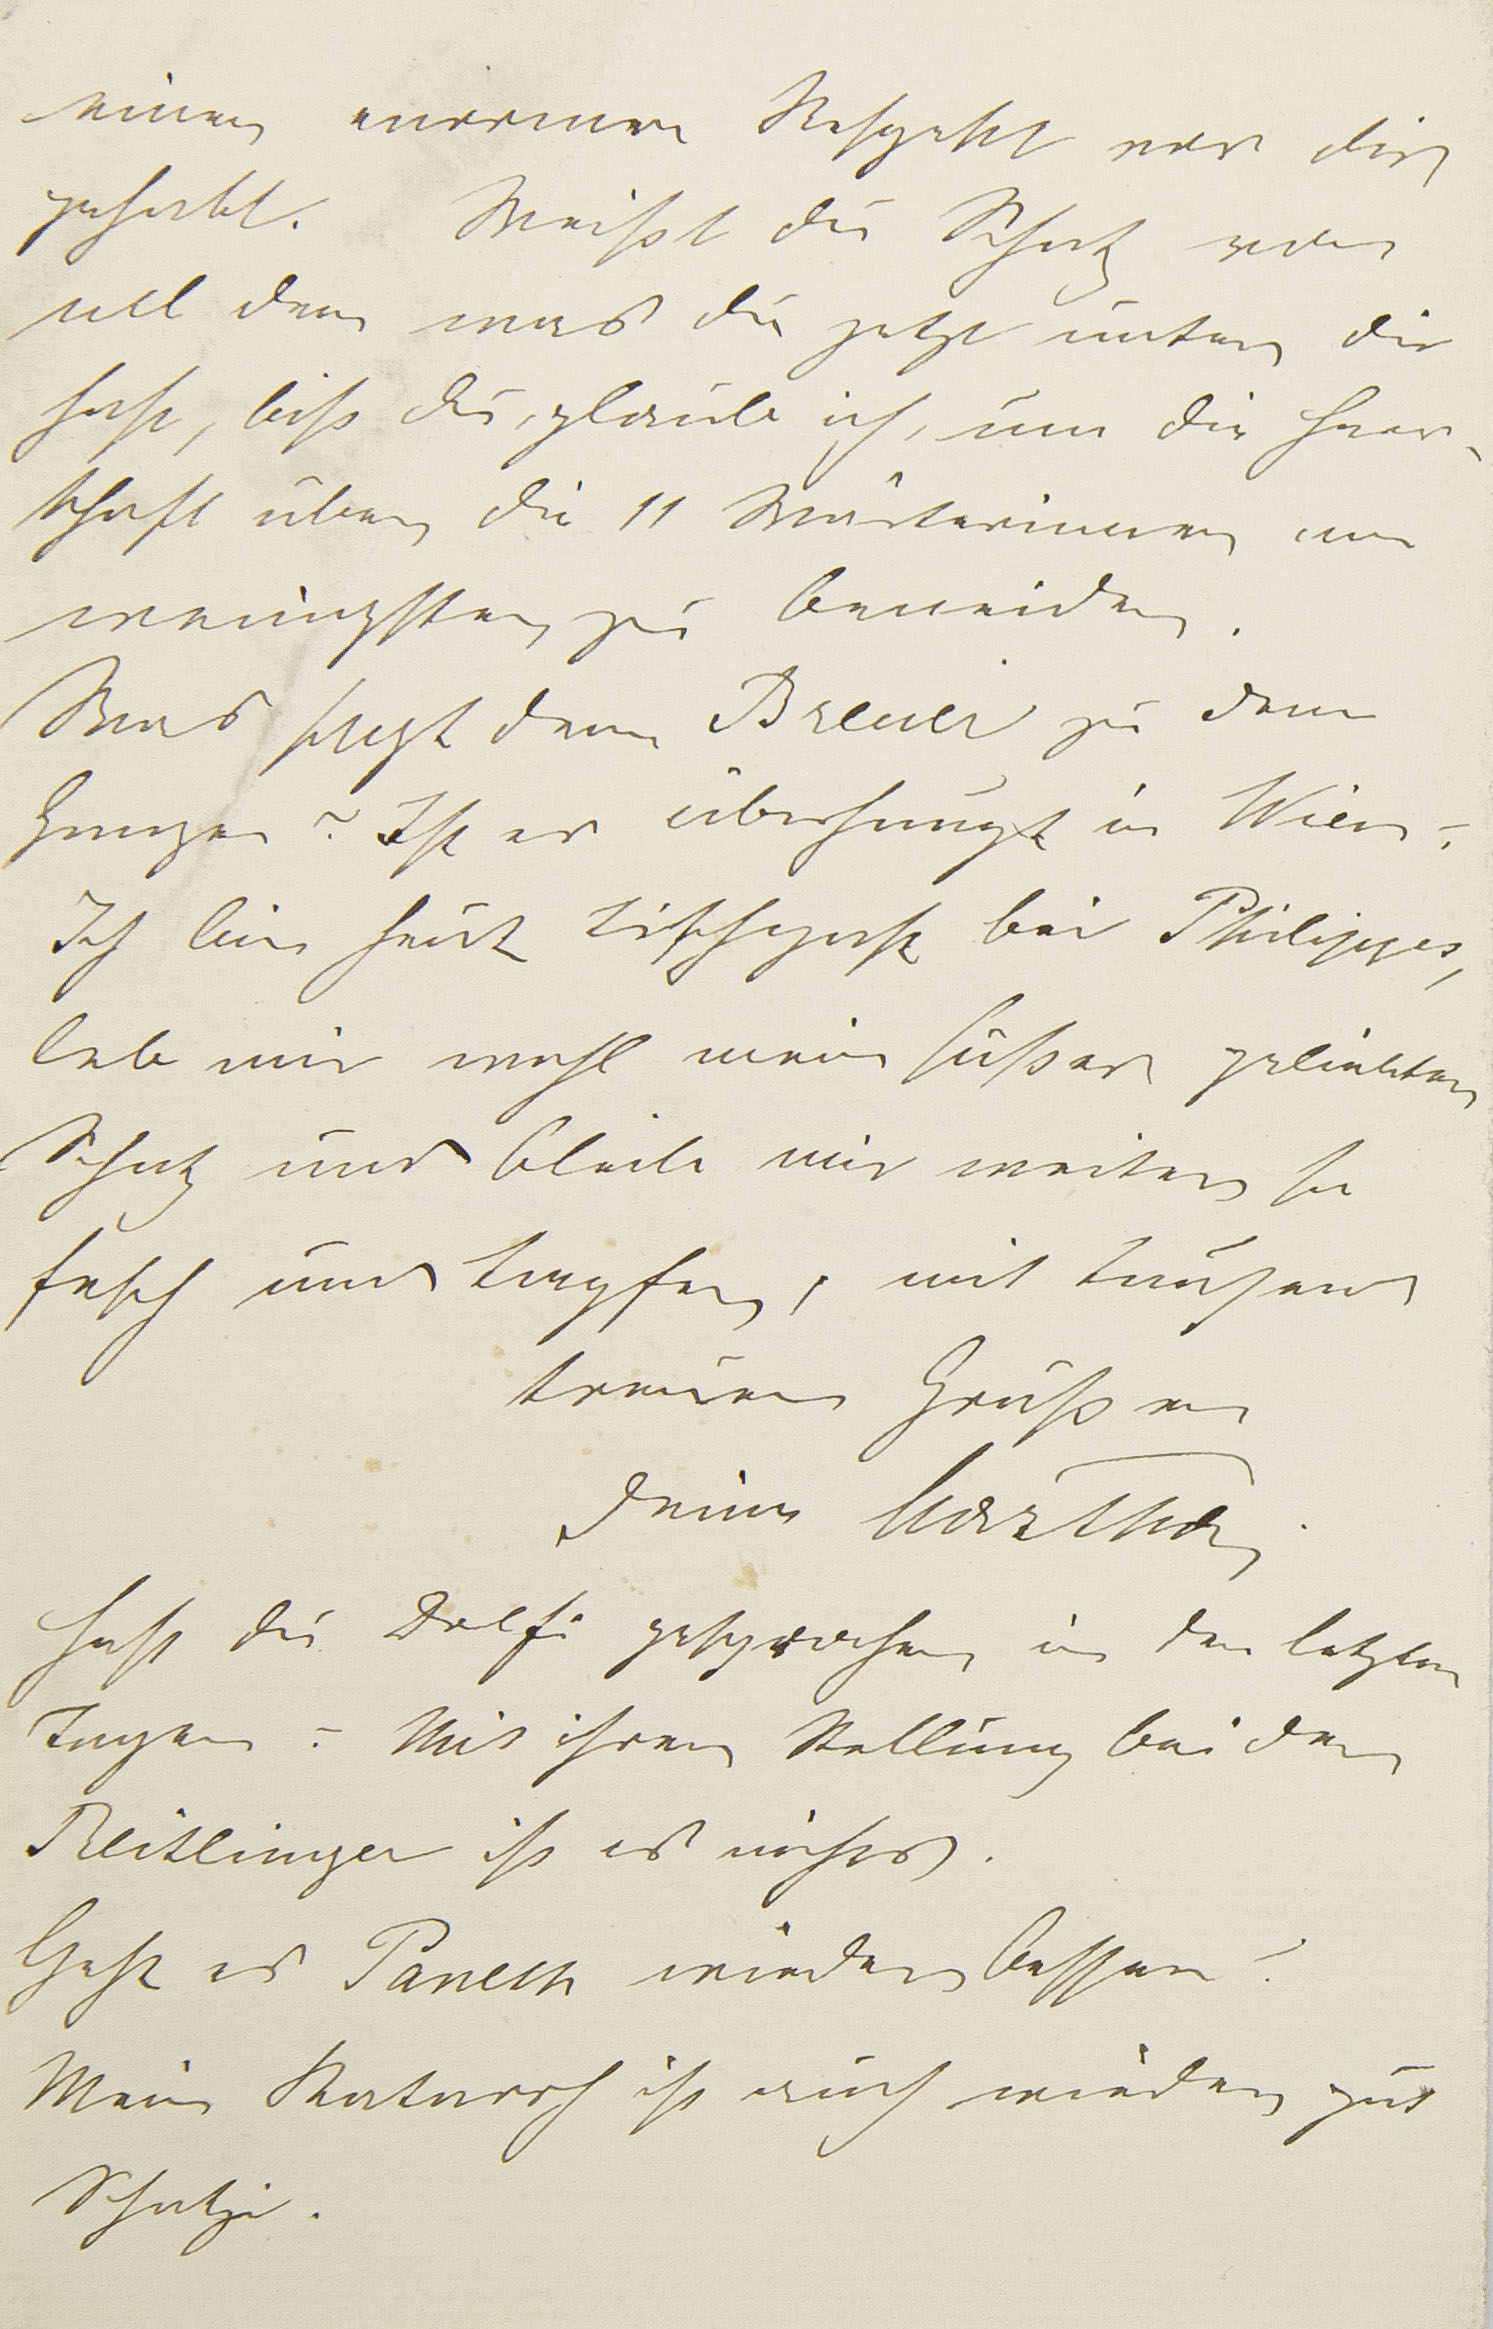 einen enormen Respekt vor dir
gehabt. Weißt du Schatz von
all dem was du jetzt unter dir
hast, bist du, glaube ich, um die Herr-
schaft über die 11 Wärterinnen am
wenigsten zu beneiden.
Was sagt denn Breuer zu dem
Ganzen? Ist er überhaupt in Wien?
Ich bin heute Tischgast bei Philipps,
lebe mir wohl mein süßer geliebter
Schatz und bleib mir weiter so
fesch und tapfer, mit tausend
treuen Grüßen
deine Martha.
Hast du Dolfi gesprochen in den letzten
Tagen? Mit ihrer Stellung bei den
Reitlinger ist es nichts.
Geht es Paneth wieder besser?
Mein Katarrh ist auch wieder gut
Schatzi.